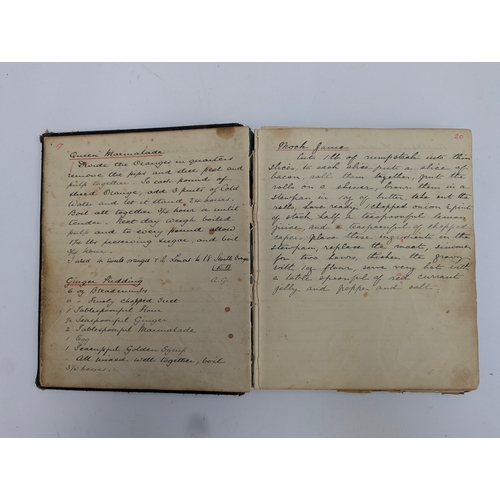 19
"Queen" Marmalade
Divide the Oranges in quarters
remove the pips and slice peel and
pulp together. To each pound of
sliced Orange, add 3 pints of Cold
Water and let it stand, 24 hours.
Boil all together ¾ hour or until
tender. Next day weigh boiled
pulp and to every pound allow
1¼ lbs preserving sugar, and boil
¾ hour.
I used
Ginger Pudding A.G.
6 oz Breadcrumbs
6 " Finely chopped Suet
1 Tablespoonful Flour
Teaspoonful Ginger
2 Tablespoonful Marmalade
1 Egg
1 Teacupful Golden Syrup
All mixed well together, boil
3½ hours.
20
Mock Game
Cut 1 lb of rumpsteak into thin
slices, to each slice put a slice of
bacon, roll them together, put the
rolls on a skewer, brown them in a
stewpan in 1oz of butter, take out the
rolls, have ready 1 chopped onion ½ pint
of stock half a teaspoonful lemon
juice, and a teaspoonful of chopped
capers, place these ingredients in the
stewpan, replace the meat, simmer
for two hours, thicken the gravy
with 1oz flour, serve very hot with
a table spoonful of red currant
jelly and pepper and salt.